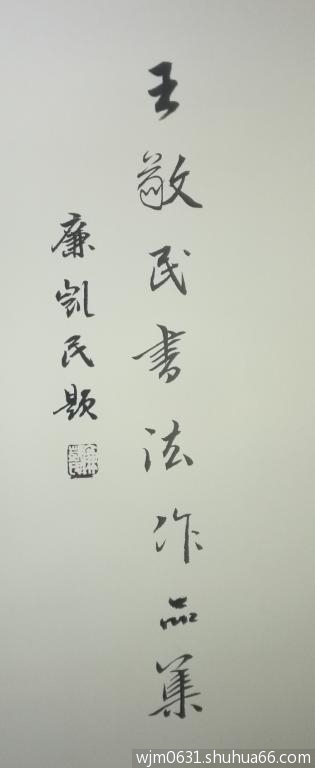 王敬民书法作品集
廉凯民题
wjm0631.shuhua66.com